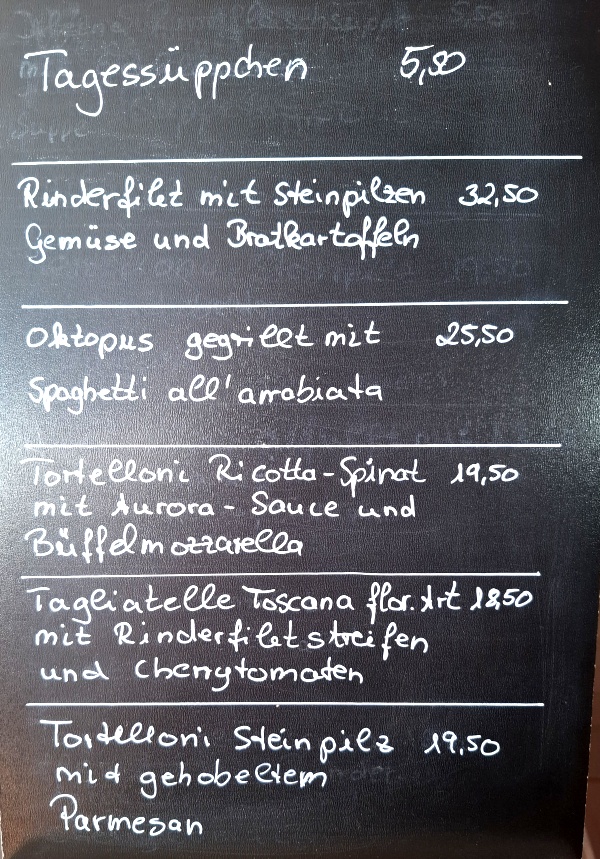 Tagessüppchen 5,90
Rinderfilet mit Steinpilzen 32,50
Gemüse und Bratkartoffeln
Oktopus gegrillt mit 25,50
Spaghetti all'arrabiata
Tortelloni Ricotta-Spinat 19,50
mit Aurora-Sauce und
Büffelmozzarella
Tagliatelle Toscana flor. Art 18,50
mit Rinderfiletstreifen
und Cherrytomaten
Tortelloni Steinpilz 19,50
mit gehobeltem
Parmesan